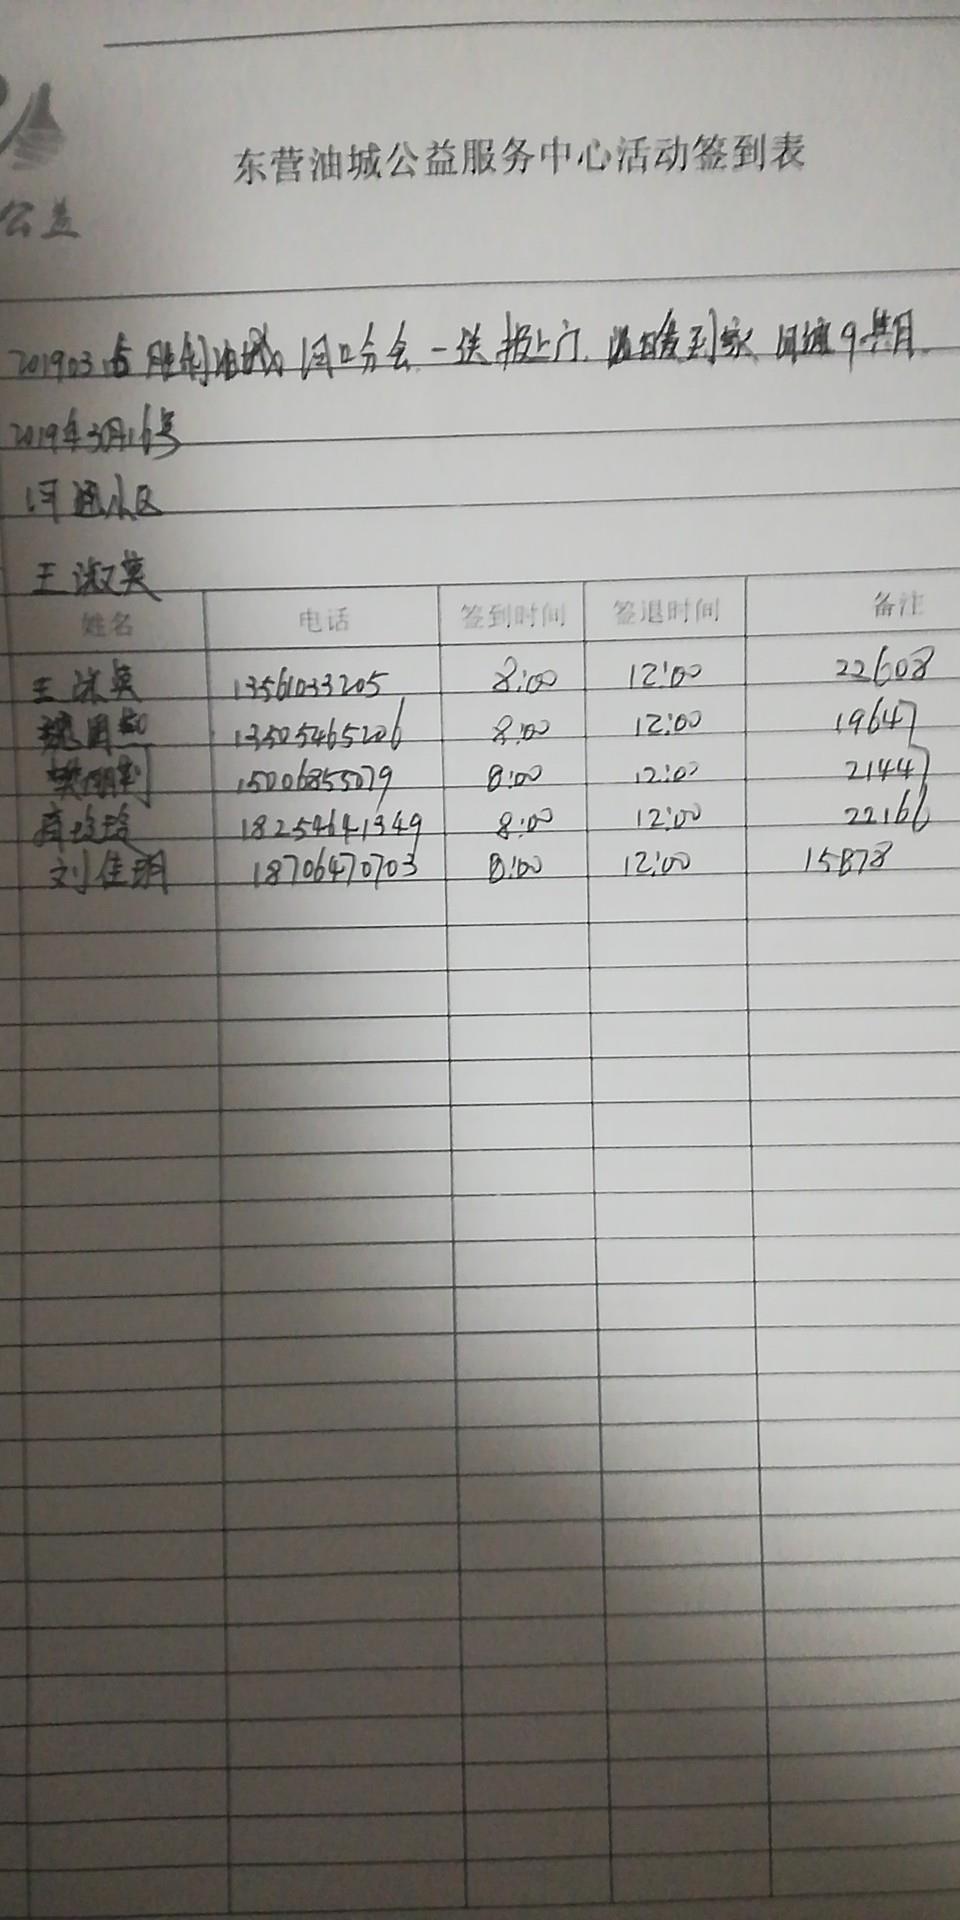 东营油城公益服务中心活动签到表
公益
201903 胜利油城 河口分会 - 送报上门 温暖到家 9 月
2019年3月16号
河 小区
王淑英
姓名 电话 签到时间 签退时间 备注
王淑英 13561033205 8:00 12:00 22608
魏 13505465206 8:00 12:00 19647
樊 15006855079 8:00 12:00 21447
18254641349 8:00 12:00 22166
刘佳明 18706470703 8:00 12:00 15878